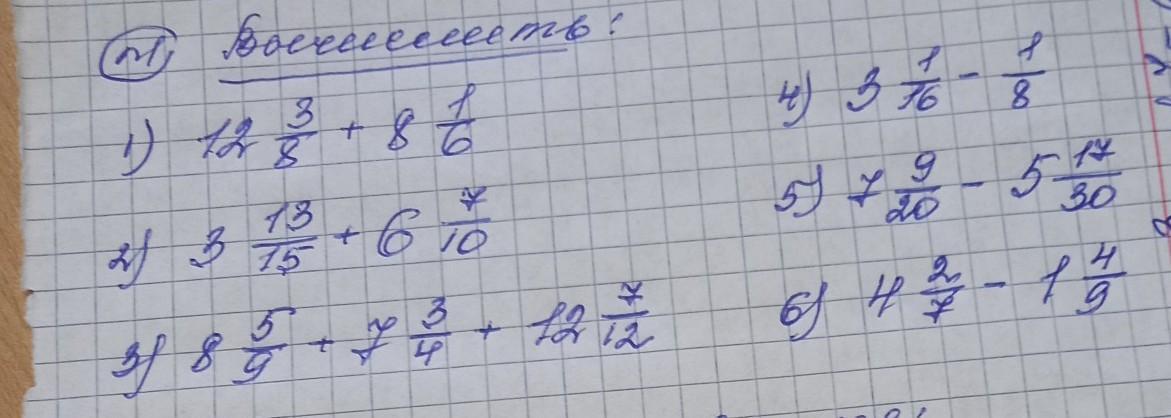 №1 Вычислить:
1) 12 3/8 + 8 1/6
2) 3 13/15 + 6 7/10
3) 8 5/9 + 7 3/4 + 12 7/12
4) 3 1/16 - 1/8
5) 7 9/20 - 5 17/30
6) 4 2/7 - 1 4/9